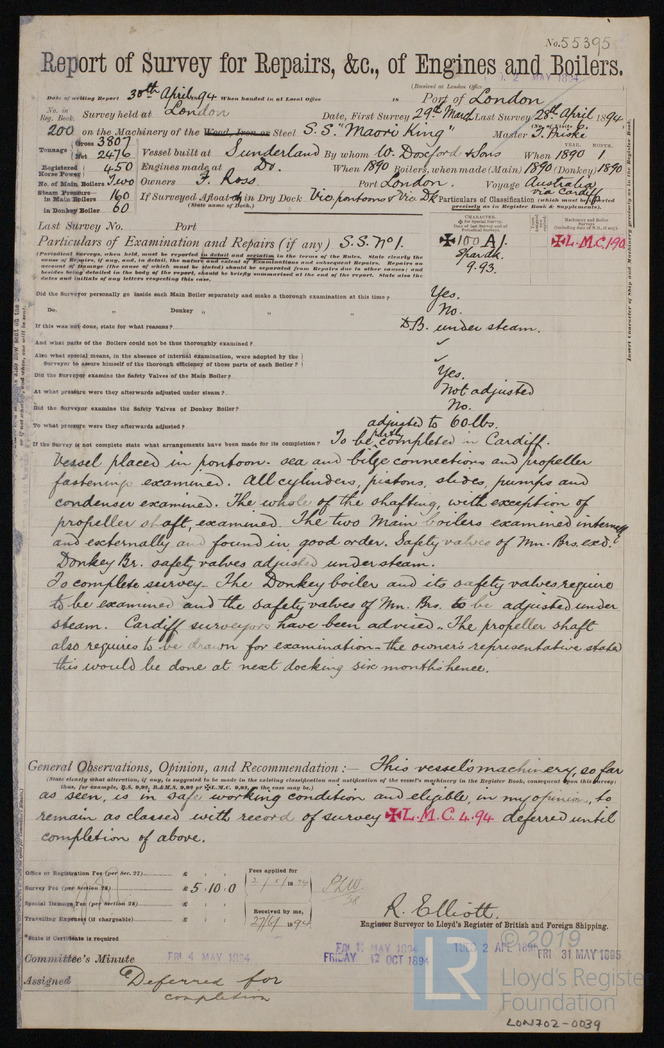 No. 55395
Report of Survey for Repairs, &c., of Engines and Boilers.
(Received at London Office 2 MAY 1894
Date of writing Report 30th April 94 When handed in at Local Office 18 Port of London
No. in Reg. Book. Survey held at London Date, First Survey 29th March Last Survey 28th April 1894
200 on the Machinery of the Wood, Iron or Steel S.S. "Maori King" Master
Tonnage Gross 3807 Net 2476 Vessel built at Sunderland By whom W. Doxford & Sons When 1890 YEAR. MONTH. 1
Registered Horse Power 450 Engines made at Do. When 1890 Boilers, when made (Main) 1890 (Donkey) 1890
No. of Main Boilers Two Owners F. Ross Port London Voyage Australia via Cardiff
Steam Pressure in Main Boilers 160 If Surveyed Afloat or in Dry Dock Vic. pontoons & Vic. Dk
in Donkey Boiler 60 (State name of Dock.)
Particulars of Classification (which must be inserted precisely as in Register Book & Supplements).
Last Survey No. Port
Particulars of Examination and Repairs (if any) S.S. No 1.
CHARACTER.
✠100 A1.
9.93.
Machinery and Boiler Surveys
✠L.M.C. 1.90
(Periodical Surveys, when held, must be reported in detail and seriatim in the terms of the Rules. State clearly the
Did the Surveyor personally go inside each Main Boiler separately and make a thorough examination at this time? Yes.
Do. " Donkey " " " No.
If this was not done, state for what reasons? D.B. under steam.
And what parts of the Boilers could not be thus thoroughly examined? ✓
Also what special means, in the absence of internal examination, were adopted by the
Surveyor to assure himself of the thorough efficiency of those parts of each Boiler? ✓
Did the Surveyor examine the Safety Valves of the Main Boiler? Yes.
At what pressure were they afterwards adjusted under steam? Not adjusted
Did the Surveyor examine the Safety Valves of Donkey Boiler? No.
To what pressure were they afterwards adjusted? adjusted to 60 lbs.
If the Survey is not complete state what arrangements have been made for its completion? To be partly completed in Cardiff.
Vessel placed in pontoon. sea and bilge connections and propeller
fastenings examined. All cylinders, pistons, slides, pumps and
condenser examined. The whole of the shafting, with exception of
propeller shaft, examined. The two Main boilers examined internally
and externally and found in good order. Safety valves of Mn. Brs. exd.
Donkey Br. safety valves adjusted under steam.
To complete survey - The Donkey boiler and its safety valves require
to be examined and the safety valves of Mn. Brs. to be adjusted under
steam. Cardiff surveyors have been advised. The propeller shaft
also requires to be drawn for examination - the owner's representative stated
this would be done at next docking six months hence.
General Observations, Opinion, and Recommendation:— This vessel's machinery, so far
(State clearly what alteration, if any, is suggested to be made in the existing classification and notification of the vessel's machinery in the Register Book, consequent upon this survey;
as seen, is in safe working condition and eligible, in my opinion, to
remain as classed with record of survey ✠L.M.C. 4.94 deferred until
completion of above.
Office or Registration Fee (per Sec. 27) £ Fees applied for
Survey Fee (per Section 28) £ 5.10.0
Special Damage Fee (per Section 28) £ Received by me,
Travelling Expenses (if chargeable) £ 1894
*State if Certificate is required
R. Elliott.
Engineer Surveyor to Lloyd's Register of British and Foreign Shipping.
Committee's Minute FRI 4 MAY 1894 FRIDAY 12 OCT 1894 TUES 2 APR 1895 FRI 31 MAY 1895
Assigned Deferred for
completion
© 2019
LR Lloyd's Register
Foundation
LON702-0039